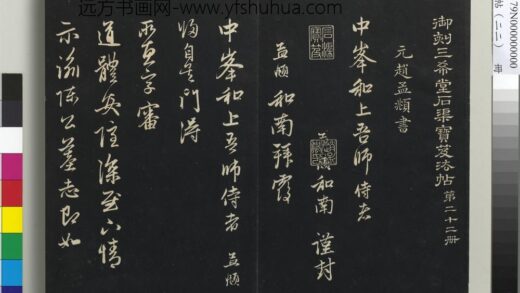 远方书画网 - www.yfshuhua.com
御刻三希堂石渠寶笈法帖 第二十二册
元趙孟頫書
中峯和上吾師侍者
孟頫和南謹封
孟頫和南拜覆
中峯和上吾師侍者 孟頫
師自吳門得
所惠字審
道體安隱深慰下情
示諭陳公墓志即如
79N00000000000
帖(二二)